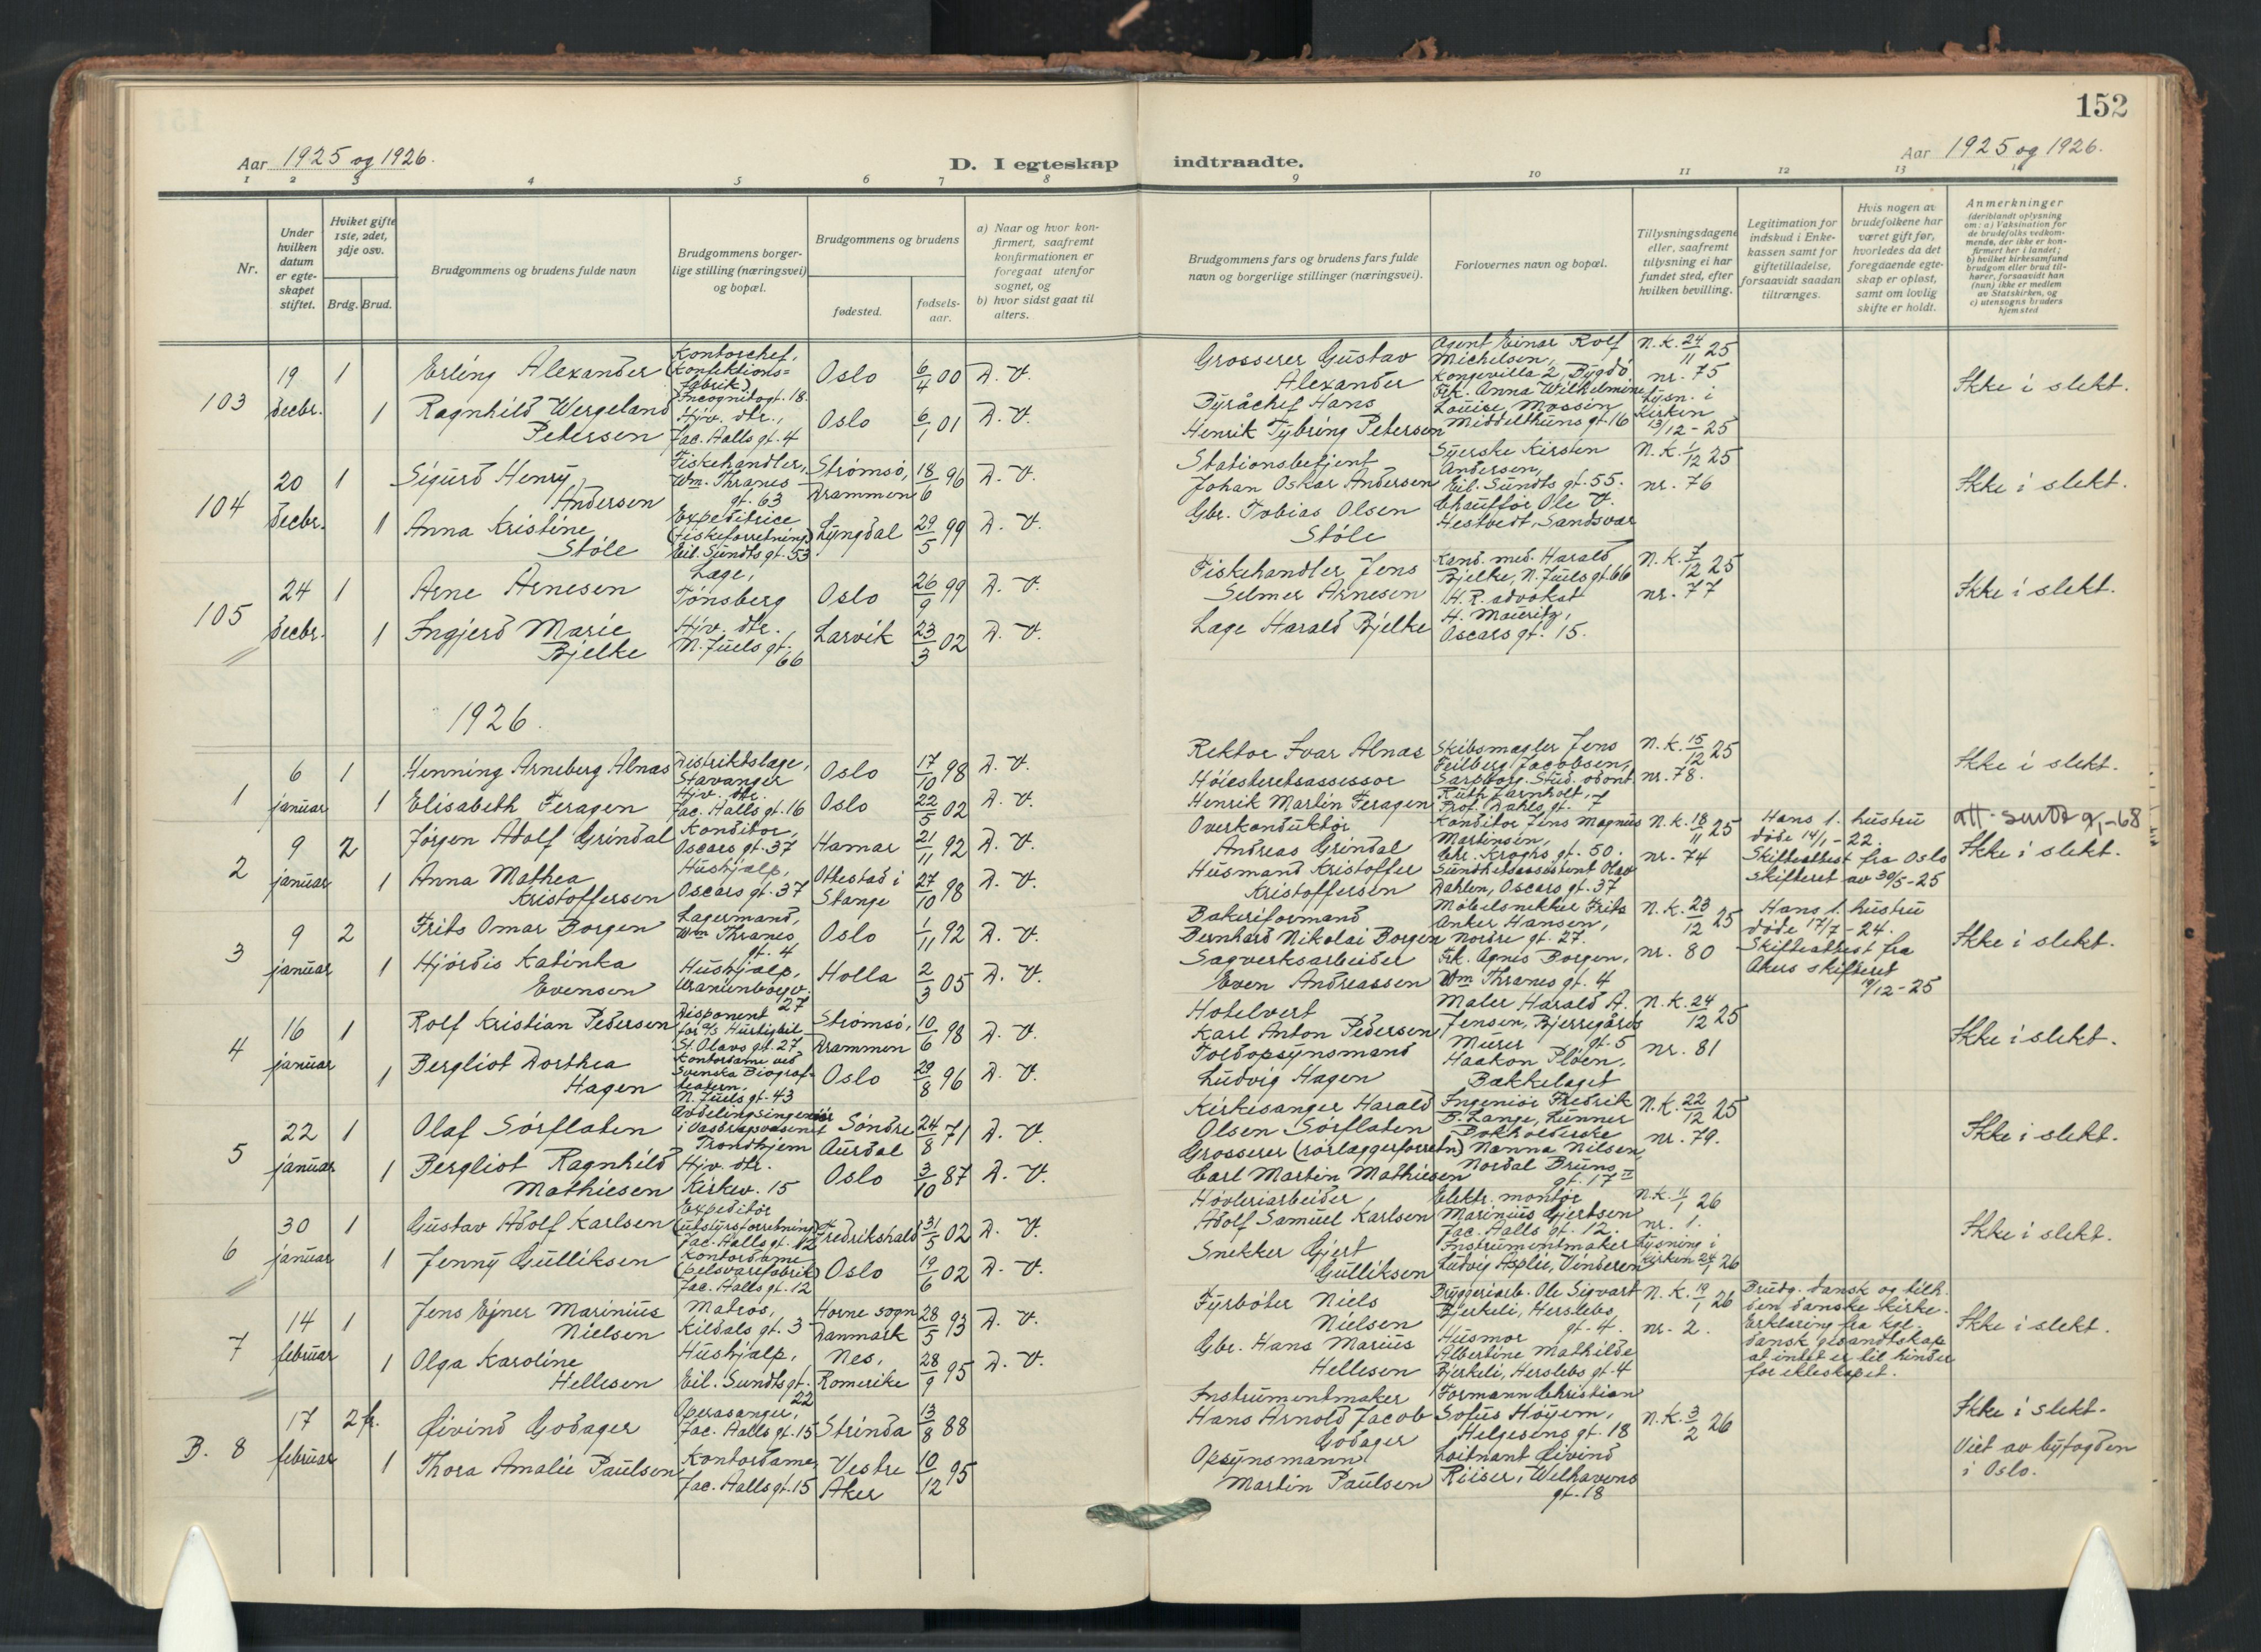 152
Aar 1925 og 1926.
D. I egteskap indtraadte.
Aar 1925 og 1926.
1 2 3 4 5 6 7 8 9 10 11 12 13 14
Nr.
Under hvilken datum er egteskapet stiftet.
Hviket gifte 1ste, 2det, 3dje osv.
Brdg. Brud.
Brudgommens og brudens fulde navn
Brudgommens borgerlige stilling (næringsvei) og bopæl.
Brudgommens og brudens
fødested.
fødselsaar.
a) Naar og hvor konfirmert, saafremt konfirmationen er foregaat utenfor sognet, og
b) hvor sidst gaat til alters.
Brudgommens fars og brudens fars fulde navn og borgerlige stillinger (næringsvei).
Forlovernes navn og bopæl.
Tillysningsdagene eller, saafremt tillysning ei har fundet sted, efter hvilken bevilling.
Legitimation for indskud i Enkekassen samt for giftetilladelse, forsaavidt saadan tiltrænges.
Hvis nogen av brudefolkene har været gift før, hvorledes da det foregaaende egteskap er opløst, samt om lovlig skifte er holdt.
Anmerkninger
(deriblandt oplysning om: a) Vaksination for de brudefolks vedkommende, der ikke er konfirmert her i landet; b) hvilket kirkesamfund brudgom eller brud tilhører, forsaavidt han (hun) ikke er medlem av Statskirken, og c) utensogns bruders hjemsted
103
19 decbr.
1
Erling Alexander
Kontorchef, (Konfektionsfabrik). Incognitogt. 18
Oslo
6/4 00
D. V.
Grosserer Gustav Alexander
Agent Einar Rolf Michelsen, Kongevilla 2, Bygdö
N. K. 24/11 25 nr. 75
Ikke i slekt.
1
Ragnhild Wergeland Petersen
Hjv. dtr., Jac. Aalls gt. 4
Oslo
6/1 01
D. V.
Byråchef Hans Henrik Tybring Petersen
Frk. Anna Wilhelmine Louise Mossin, Middelthuns gt. 16
Lysn. i Kirken 13/12 - 25
104
20 decbr.
1
Sigurd Henry Andersen
Fiskehandler, Wm. Thranes gt. 63
Strømsö, Drammen
18/6 96
D. V.
Stationsbetjent Johan Oskar Andersen
Syerske Kirsten Andersen, Eil. Sundts gt. 55.
N. K. 1/12 25 nr. 76
Ikke i slekt.
1
Anna Kristine Støle
Expeditrice (fiskeforretning) Eil. Sundts gt. 53
Lyngdal
29/5 99
D. V.
Gbr. Tobias Olsen Støle
Chauffør Ole V. Hestvedt, Sandsvær
105
24 decbr.
1
Arne Arnesen
Læge, Tønsberg
Oslo
26/9 99
D. V.
Fiskehandler Jens Selmer Arnesen
Kand. med. Harald Bjelke, N. Juels gt. 66
N. K. 7/12 25 nr. 77
Ikke i slekt.
1
Ingjerd Marie Bjelke
Hjv. dtr. N. Juels gt. 66
Larvik
23/3 02
D. V.
Læge Harald Bjelke
H. R. advokat H. Mauritz, Oscars gt. 15.
1926.
1
6 januar
1
Henning Arneberg Alnæs
Distriktslæge, Stavanger
Oslo
17/10 98
D. V.
Rektor Ivar Alnæs
Skibsmægler Jens Feilberg Jacobsen, Sarpborg.
N. K. 15/12 25 nr. 78.
Ikke i slekt.
1
Elisabeth Feragen
Hjv. dtr. Jac. Aalls gt. 16
Oslo
22/5 02
D. V.
Høiesteretsassessor Henrik Martin Feragen
Stud. odont. Ruth Jarnholt, Prof. Dahls gt. 7
2
9 januar
2
Jørgen Adolf Grindal
Konditor, Oscars gt. 37
Hamar
21/11 92
D. V.
Overkonduktør Andreas Grindal
Konditor Jens Magnus Martinsen, Chr. Kroghs gt. 50.
N. K. 18/11 25 nr. 74
Hans 1. hustru døde 14/1 - 22. Skifteattest fra Oslo skifteret av 30/5 - 25
Ikke i slekt.
1
Anna Mathea Kristoffersen
Hushjælp, Oscars gt. 37
Ottestad i Stange
27/10 98
D. V.
Husmand Kristoffer Kristoffersen
Sundhetsassistent Olav Dahlen, Oscars gt. 37
3
9 januar
2
Frits Omar Borgen
Lagermand, Wm Thranes gt. 4
Oslo
1/11 92
D. V.
Bakeriformand Bernhard Nikolai Borgen
Møbelsnekker Frits Anker Hansen, Nordre gt. 27.
N. K. 23/12 25 nr. 80
Hans 1. hustru døde 17/7 - 24. Skifteattest fra Akers skifteret 19/12 - 25
Ikke i slekt.
1
Hjördis Katinka Evensen
Hushjælp, Uranienborgv. 27
Holla
2/3 05
D. V.
Sagverksarbeider Even Andreassen
Frk. Agnis Borgen, Wm Thranes gt. 4
4
16 januar
1
Rolf Kristian Pedersen
Disponent for A/S Hurtigbil St. Olavs gt. 27
Strømsö, Drammen
10/6 98
D. V.
Hotelvert Karl Anton Pedersen
Maler Harald A. Jensen, Bjerregårds gt. 5
N. K. 24/12 25 nr. 81
Ikke i slekt.
1
Bergliot Dorthea Hagen
Kontordame ved Svenska Biografteatern, N. Juels gt. 43
Oslo
29/8 96
D. V.
Toldopsynsmand Ludvig Hagen
Murer Haakon Pløen, Bækkelaget
5
22 januar
1
Olaf Sørflaten
Avdelingsingeniør i Vasdragsvæsenet Trondhjem
Søndre Aurdal
24/8 71
D. V.
Kirkesanger Harald Olsen Sørflaten
Ingeniør Fredrik B. Lange, Lunner
N. K. 22/12 25 nr. 79.
Ikke i slekt.
1
Bergliot Ragnhild Mathiesen
Hjv. dtr. Kirkev. 15
Oslo
3/10 87
D. V.
Grosserer (rørlæggerforretn) Carl Martin Mathiesen
Bokholderske Nanna Nilsen, Nordal Bruns gt. 17 II
6
30 januar
1
Gustav Adolf Karlsen
Expeditør (utstyrsforretning) Jac. Aalls gt. 12
Fredrikshald
31/5 02
D. V.
Høvleriarbeider Adolf Samuel Karlsen
Elektr. montør Marinius Gjertsen Jac. Aalls gt. 12.
N. K. 11/1 26 nr. 1.
Ikke i slekt.
1
Jenny Gulliksen
Kontordame (pelsvarefabrik) Jac. Aalls gt. 12
Oslo
19/6 02
D. V.
Snekker Gjert Gulliksen
Instrumentmaker Ludvig Asplie, Vinderen
Lysning i Kirken 24/1 26
7
14 februar
1
Jens Ejner Marinius Nielsen
Matros, Kildals gt. 3
Horne sogn Danmark
28/5 93
D. V.
Fyrbøter Niels Nielsen
Bryggeriarb. Ole Sigvart Bjerkeli, Herslebs gt. 4.
N. K. 19/1 26 nr. 2.
Brudg. dansk og tilh. den danske kirke. Erklæring fra kgl. dansk gesandtskap at intet er til hinder for ekteskapet.
Ikke i slekt.
1
Olga Karoline Hellesen
Hushjælp, Eil. Sundts gt. 22
Nes, Romerike
28/9 95
D. V.
Gbr. Hans Marius Hellesen
Husmor Albertine Mathilde Bjerkeli, Herslebs gt. 4
B. 8
17 februar
2 fr.
Øivind Godager
Operasanger, Jac. Aalls gt. 15
Strinda
13/8 88
Instrumentmaker Hans Arnold Jacob Godager
Formann Christian Sofus Høyem, Helgesens gt. 18
N. K. 3/2 26
Ikke i slekt.
Viet av byfogden i Oslo.
1
Thora Amalie Paulsen
Kontordame, Jac. Aalls gt. 15
Vestre Aker
10/12 95
Opsynsmann Martin Paulsen
Løitnant Øivind Riiser, Welhavens gt. 18